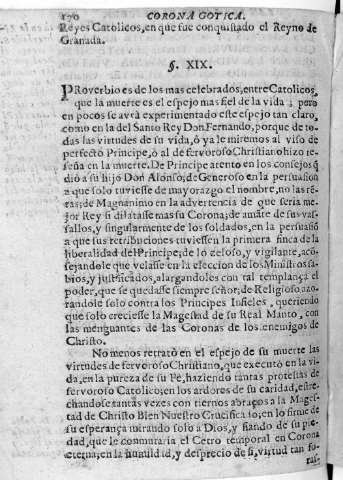 170 CORONA GOTICA.
Reyes Catolicos, en que fue conquistado el Reyno de
Granada.
§. XIX.
PRoverbio es de los mas celebrados, entre Catolicos,
que la muerte es el espejo mas fiel de la vida; pero
en pocos se avrà experimentado este espejo tan claro,
como en la del Santo Rey Don Fernando, porque de to-
das las virtudes de su vida, ò ya le miremos al viso de
perfecto Principe, ò al de fervoroso Christiano hizo re-
seña en la muerte. De Principe atento en los consejos q̃
diò a su hijo Don Alonso; de Generoso en la persuasion
a que solo tuviesse de mayorazgo el nombre, no las rẽ-
tas; de Magnanimo en la advertencia de que seria me-
jor Rey si dilatasse mas su Corona; de amãte de sus vas-
sallos, y singularmente de los soldados, en la persuasiõ
a que sus retribuciones tuviessen la primera finca de la
liberalidad del Principe; de lo zeloso, y vigilante, acõ-
sejandole que velasse en la eleccion de los Ministros sa-
bios, y justificados, alargandoles con tal templança el
poder, que se quedasse siempre señor; de Religioso, azo-
randole solo contra los Principes Infieles, queriendo
que solo creciesse la Magestad de su Real Manto, con
las menguantes de las Coronas de los enemigos de
Christo.
No menos retratò en el espejo de su muerte las
virtudes de fervoroso Christiano, que executò en la vi-
da, en la pureza de su Fè, haziendo tantas protestas de
fervoroso Catolico; en los ardores de su caridad, estre-
chandose tantas vezes con tiernos abraços a la Mages-
tad de Christo Bien Nuestro Crucificado; en lo firme de
su esperança mirando solo a Dios, y fiando de su pie-
dad, que le conmutaria el Cetro temporal en Corona
eterna; en la humildad, y desprecio de si, virtud tan fo-
ras-